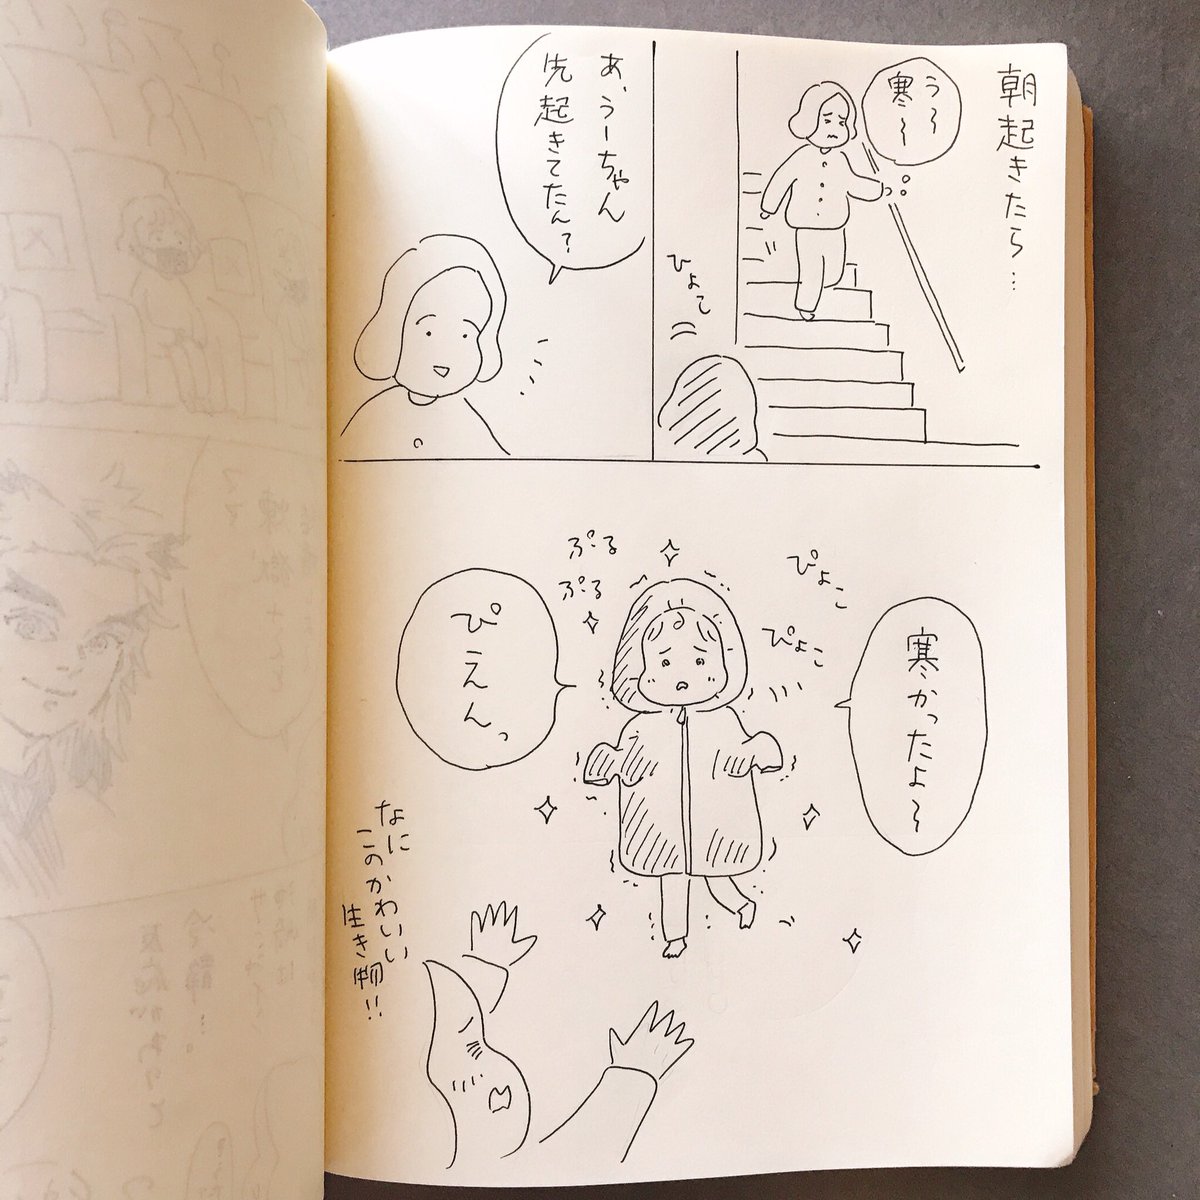 朝起きたら…
う〜
寒〜
ひょこ
あ、うーちゃん
先起きてたん?
寒かったよ〜
ぴょこ
ぴょこ
ぷる
ぷる
ぴえんっ
なに
このかわいい
生き物!!